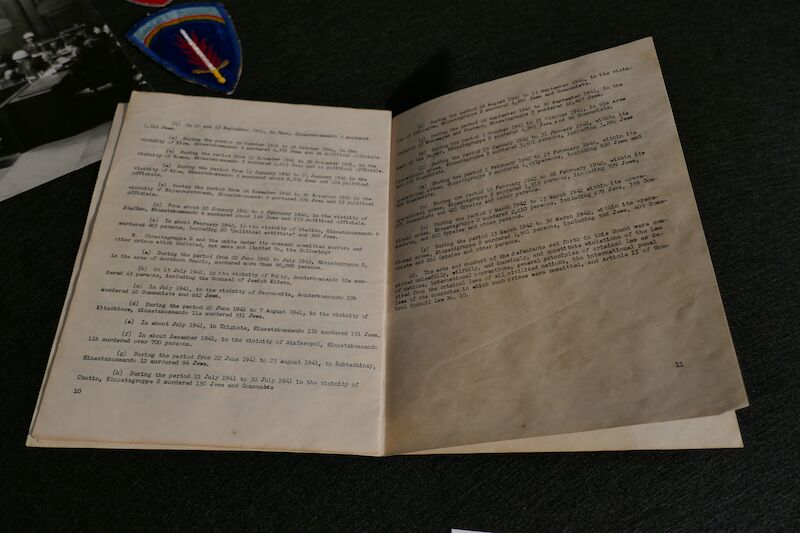 (k) On 22 and 23 September 1941, in Kiev, Einsatzkommando 5 murdered
Jews.
(l) During the period
vicinity of Kiev, Einsatzkommando 5 murdered
(m) During the period from 23 November 1941 to 30 November 1941, in the
vicinity of Rowno, Einsatzkommando 5 murdered
(n) During the period from 12 January 1942 to 24 January 1942 in the
vicinity of Kiev, Einsatzkommando 5 murdered about 8,000 Jews and 104 political
officials.
(o) During the period from 24 November 1941 to 30 November 1941 in the
vicinity of Dnjepropetrowsk, Einsatzkommando 6 murdered 226 Jews and 19 political
officials.
(p) From about 10 January 1942 to 6 February 1942, in the vicinity of
Stalino, Einsatzkommando 6 murdered about 149 Jews and 173 political officials.
(q) In about February 1942, in the vicinity of Stalino, Einsatzkommando 6
murdered 493 persons, including 80 "political activists" and 369 Jews.
9. Einsatzgruppe D and the units under its command committed murders and
other crimes which included, but were not limited to, the following:
(a) During the period from 22 June 1941 to July 1943, Einsatzgruppe D,
in the area of Southern Russia, murdered more than 90,000 persons.
(b) On 15 July 1941, in the vicinity of Beltsy, Sonderkommando 10a mur-
dered 45 persons, including the Counsel of Jewish Elders.
(c) In July 1941, in the vicinity of Chernowitz, Sonderkommando 10b
murdered 16 Communists and 682 Jews.
(d) During the period 22 June 1941 to 7 August 1941, in the vicinity of
Kitschinew, Einsatzkommando 11a murdered 551 Jews.
(e) In about July 1941, in Thigina, Einsatzkommando 11b murdered 151 Jews.
(f) In about December 1941, in the vicinity of Simferopol, Einsatzkommando
11b murdered over 700 persons.
(g) During the period from 22 June 1941 to 23 August 1941, in Babtschinzy,
Einsatzkommando 12 murdered 94 Jews.
(h) During the period 15 July 1941 to 30 July 1941 in the vicinity of
Chotin, Einsatzgruppe D murdered 150 Jews and Communists
10
(i) During the period 19 August 1941 to 15 September 1941, in the vicin-
ity of Nikolaev, Einsatzgruppe D murdered
Jews and Communists.
(j) During the period 16 September 1941 to 30 September 1941, in the
vicinity of Nikolaev and Cherson, Einsatzgruppe D murdered 22,467 Jews.
(k) During the period 1 October 1941 to 15 October 1941, in the area
east of the Dnjepr, Einsatzgruppe D murdered 4,891 Jews and 46 Communists.
(l) During the period 15 January 1942 to 31 January 1942, within its
operational areas, Einsatzgruppe D murdered 3,601 persons, including 3,286 Jews
(m) During the period 1 February 1942 to 15 February 1942, within its
operational areas, Einsatzgruppe D murdered 1,451 persons, including 920 Jews
and 468 Communists
(n) During the period 16 February 1942 to 28 February 1942, within its
operational areas, Einsatzgruppe D murdered 1,515 persons, including 729 Jews,
271 Communists and 421 Gypsies and other persons.
(o) During the period 1 March 1942 to 15 March 1942 within its opera-
tional areas, Einsatzgruppe D murdered 2,010 persons, including 678 Jews, 359 Com-
munists, and 810 Gypsies and other persons.
(p) During the period 15 March 1942 to 30 March 1942, within its opera-
tional areas, Einsatzgruppe D murdered 1,501 persons, including 588 Jews, 405 Com-
munists and 261 Gypsies and other persons.
10. The acts and conduct of the defendants set forth in this Count were com-
mitted unlawfully, wilfully, and knowingly, and constitute violations of the law
of nations, international conventions, general principles of criminal law de-
rived from the criminal laws of all civilised nations, the international penal
laws of the countries in which such crimes were committed, and Article II of Con-
trol Council Law No. 10.
11